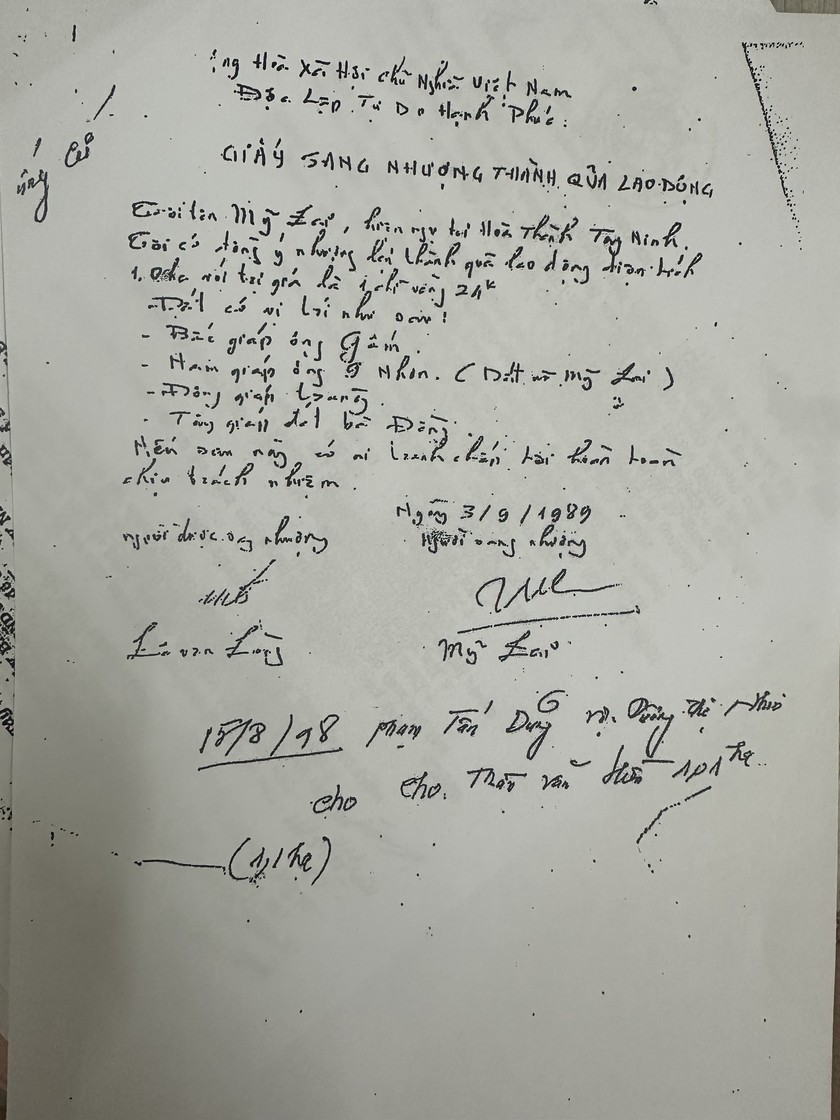 ng Hoà Xã Hội chủ Nghĩa Việt Nam
Độc Lập Tự Do Hạnh Phúc.
GIẤY SANG NHƯỢNG THÀNH QỦA LAO ĐỘNG
Tôi tên Mỹ Lai, hiện ngụ tại Hoà Thành Tây Ninh.
Tôi có đồng ý nhượng lại thành quả lao động diện tích
1,0ha với trị giá là 1 chỉ vàng 24k
Đất có vị trí như sau:
- Bắc giáp ông Gấm.
- Nam giáp ông 9 Nhơn. (Đất Mỹ Lai)
- Đông giáp trảng.
- Tây giáp đất bà Đông.
Nếu sau này có ai tranh chấp tôi hoàn toàn
chịu trách nhiệm.
Ngày 3/9/1989
người được sang nhượng người sang nhượng
Lê văn Mỹ Lai
15/8/98 phạm Tấn Dũng vợ. thị
cho cho. văn 1,01 ha
(1,1 ha)